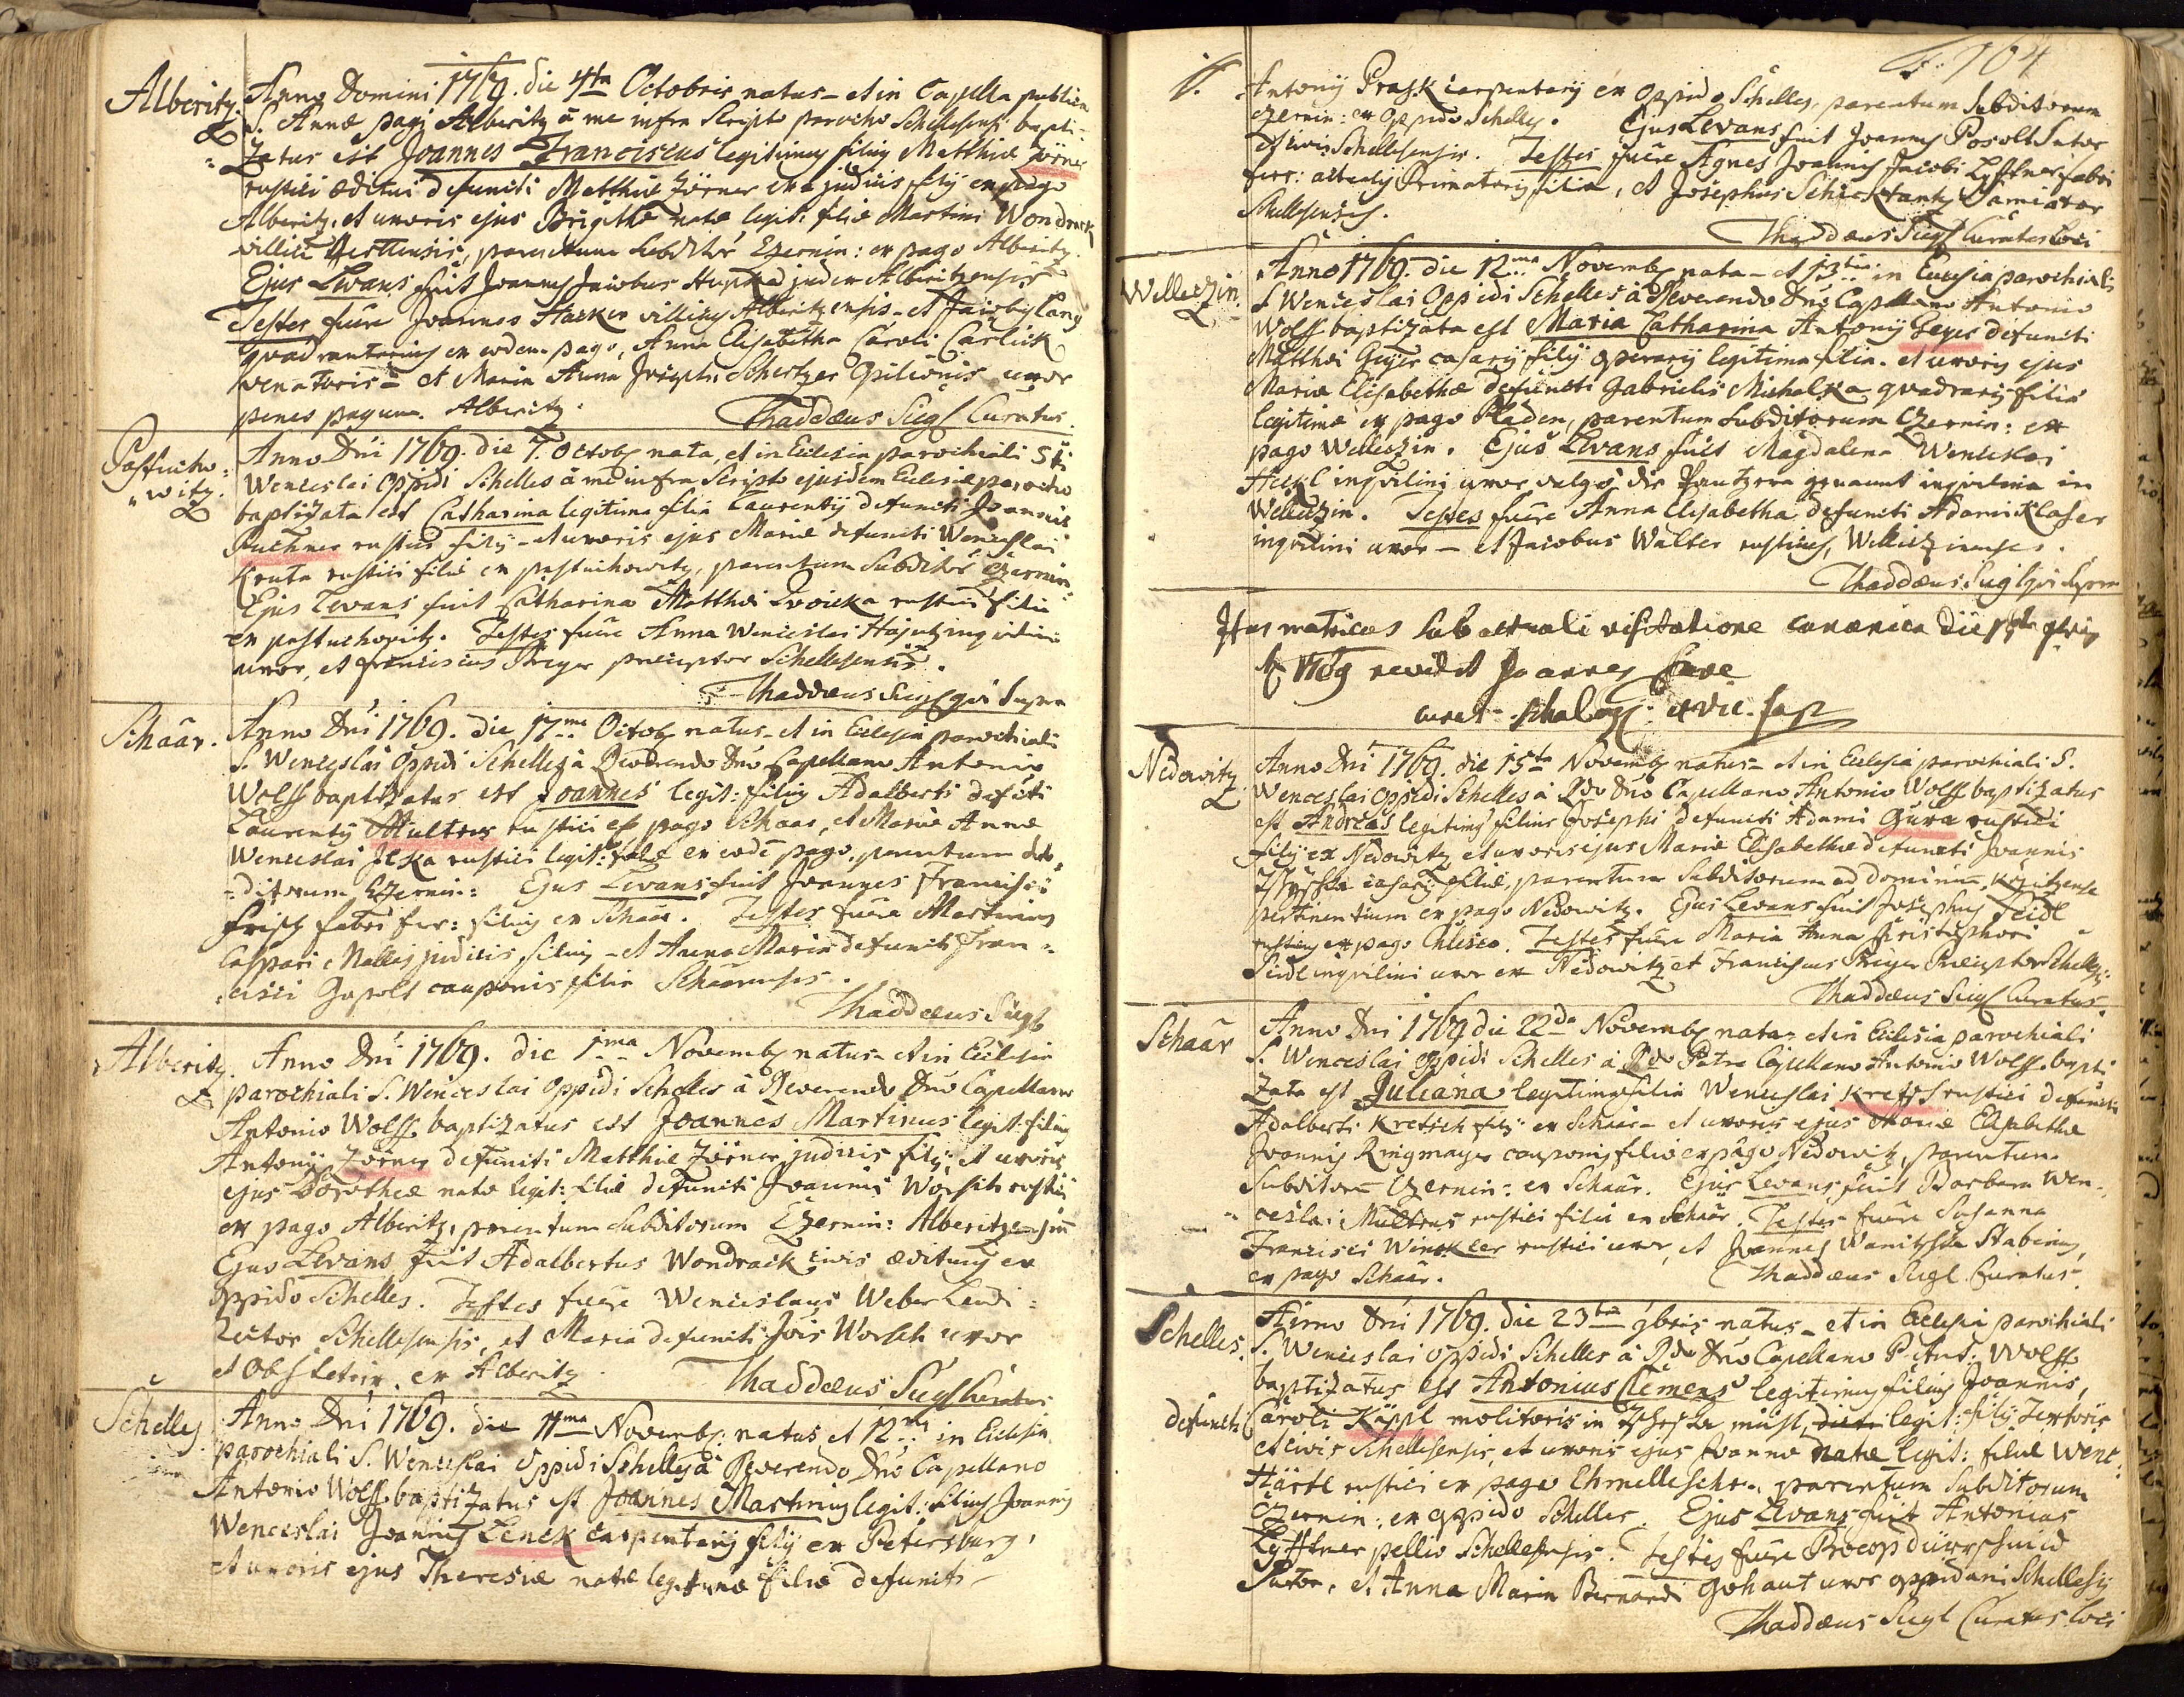 Alberitz. Anno Domini 1769. die 4ta Octobris natus - et in Capella publica
S. Annæ pagi Alberitz à me infra scripto parocho Schellesensi bapti-
zatus est Joannes Franciscus legitimus filius Matthiæ Zörner
rustici æditui defuncti Matthiæ Zörner ex judicis filij ex pago
Alberitz, et uxoris ejus Brigittæ natæ legit: filiæ Martini Wondrack
villici parentum subditor Czernin: ex pago Alberitz.
Ejus Levans fuit Joannes Jacobus judex Alberitzensis
Testes fuere Joannes Stacker villicus Alberitzensis - et Jacobus Lang
quadrantarius ex eodem pago, Anna Elisabetha Caroli Carlick
venatoris - et Maria Anna Josephi Schertzer Opilionis uxor
penes pagum Alberitz.
Thaddæus Siegl Curatus.
Pastucho-
witz. Anno Dni 1769. die 7. Octob nata, et in Ecclesia parochiali Sti
Wenceslai Oppidi Schelles à me infra scripto ejusdem Ecclesiæ parocho
baptizata est Catharina legitima filia Laurentij defuncti Joannis
Puchner rustici filij - et uxoris ejus Mariæ defuncti Wenceslai
Kruta rustici filiæ ex pastuchowitz, parentum subditor Czernin:
Ejus Levans fuit Catharina Matthæi rustici filia
ex pastuchowitz. Testes fuere Anna Wenceslai Hajntz inquilini
uxor, et Franciscus Preger præceptor Schellesensis.
Thaddæus Siegl qui supra
Schaar. Anno Dni 1769. die 17ma Octob natus - et in Ecclesia parochiali
S. Wenceslai Oppidi Schelles à Reverendo Dno Capellano Antonio
Wolff baptizatus est Joannes legit: filius Adalberti defuncti
Laurentij Multrus rustici ex pago Schaar, et Mariæ Annæ
Wenceslai Jlska rustici legit: filiæ ex eodem pago, parentum sub-
ditorum Czernin: Ejus Levans fuit Joannes Francisci
Frisch fabri fer: filius ex Schaar. Testes fuere Martinus
Caspari judicis filius - et Anna Maria defuncti Fran-
cisci Gopolt cauponis filia Schaarensis.
Thaddæus Siegl
Alberitz. Anno Dni 1769. die 1ma Novemb natus - et in Ecclesia
parochiali S. Wenceslai Oppidi Schelles à Reverendo Dno Capellano
Antonio Wolff baptizatus est Joannes Martinus legit: filius
Antonij Zörner defuncti Matthiæ Zörner judicis filij, et uxoris
ejus Dorotheæ natæ legit: filiæ defuncti Joannis Worsch rustici
ex pago Alberitz, parentum subditorum Czernin: Alberitzensium
Ejus Levans fuit Adalbertus Wondrack civis ædituus ex
oppido Schelles. Testes fuere Wenceslaus Weber Ludi-
rector Schellesensis, et Maria defuncti Jois Worsch uxor
et Obstetrix ex Alberitz.
Thaddæus Siegl Curatus
Schelles. Anno Dni 1769. die 11ma Novemb: natus et 12ma in Ecclesia
parochiali S. Wenceslai Oppidi Schelles à Reverendo Dno Capellano
Antonio Wolff baptizatus est Joannes Martinus legit: filius Joannis
Wenceslai Joannis Lenck carpentarij filij ex Petersburg,
et uxoris ejus Theresiæ natæ legitimæ filiæ defuncti
F. 164
Antonij Prask carpentarij ex oppido Schelles, parentum subditorum
Czernin: ex oppido Schelles. Ejus Levans fuit Joannes Posolt Sutor
et civis Schellesensis. Testes fuere Agnes Joannis Jacobi Lyftner fabri
ferr: Primatoris filia, et Josephus Schicktantz
Schellesensis.
Thaddæus Siegl Curatus loci
Welletzin. Anno 1769. die 12ma Novemb nata - et 13tia in Ecclesia parochiali
S Wenceslai Oppidi Schelles à Reverendo Dno Capellano Antonio
Wolff baptizata est Maria Catharina Antonij Geyer defuncti
Matthæi Geyer casarij filij operarij legitima filia. et uxoris ejus
Mariæ Elisabethæ defuncti Gabrielis Michalka quadrarij filiæ
legitimæ ex pago Pladen, parentum subditorum Czernin: ex
pago Welletzin. Ejus Levans fuit Magdalena Wenceslai
inquilini uxor vulgo die genannt inquilina in
Welletzin. Testes fuere Anna Elisabetha defuncti Adami Klaser
inquilini uxor - et Jacobus Walter rusticus, Welletzinenses.
Thaddæus Siegl qui supra
Has matrices sub actuali visitatione canonica die
1769 revidit Joannes
Nedowitz Anno Dni 1769. die 15ta Novemb natus - et in Ecclesia parochiali S.
Wenceslai Oppidi Schelles à Rdo Dno Capellano Antonio Wolff baptizatus
est Andreas legitimus filius Josephi defuncti Adami Gura rustici
filij ex Nedowitz et uxoris ejus Mariæ Elisabethæ defuncti Joannis
casarij filiæ, parentum subditorum ad dominium
pertinentium ex pago Nedowitz. Ejus Levans fuit Josephus Seidl
rusticus ex pago Chlisto. Testes fuere Maria Anna Christophori
Seidl inquilini uxor ex Nedowitz et Franciscus Preger Præceptor Schelles:
Thaddæus Siegl Curatus.
Schaar Anno Dni 1769 die 22da Novemb nata - et in Ecclesia parochiali
S. Wenceslai oppidi Schelles à Rdo Patre Capellano Antonio Wolff bapti
zata est Juliana legitima filia Wenceslai Kretsch rustici defuncti
Adalberti Kretsch filij ex Schaar - et uxoris ejus Mariæ Elisabethæ
Joannis Ringmayer cauponis filiæ ex pago Nedowitz, parentum
subditorum Czernin: ex Schaar. Ejus Levans fuit Barbara Wen-
ceslai Multrus rustici filia ex Schaar. Testes fuere Susanna
Francisci Winckler rustici uxor, et Joannes
ex pago Schaar. Thaddæus Siegl Curatus.
Schelles. Anno Dni 1769. die 23tia 9bris natus - et in Ecclesia parochiali
S. Wenceslai oppidi Schelles à Rdo Dno Capellano P. Ant: Wolff
baptizatus est Antonius Clemens legitimus filius Joannis,
defuncti Caroli Käppl molitoris in legit: filij Textoris
et civis Schellesensis, et uxoris ejus Joannæ natæ legit: filiæ Wenc:
Härtl rustici ex pago parentum subditorum
Czernin: ex oppido Schelles. Ejus Levans fuit Antonius
Lyftner pellio Schellesensis. Testes fuere Procop
Sutor, et Anna Maria Bernardi Gohaut uxor oppidani Schellesis
Thaddæus Siegl Curatus loci